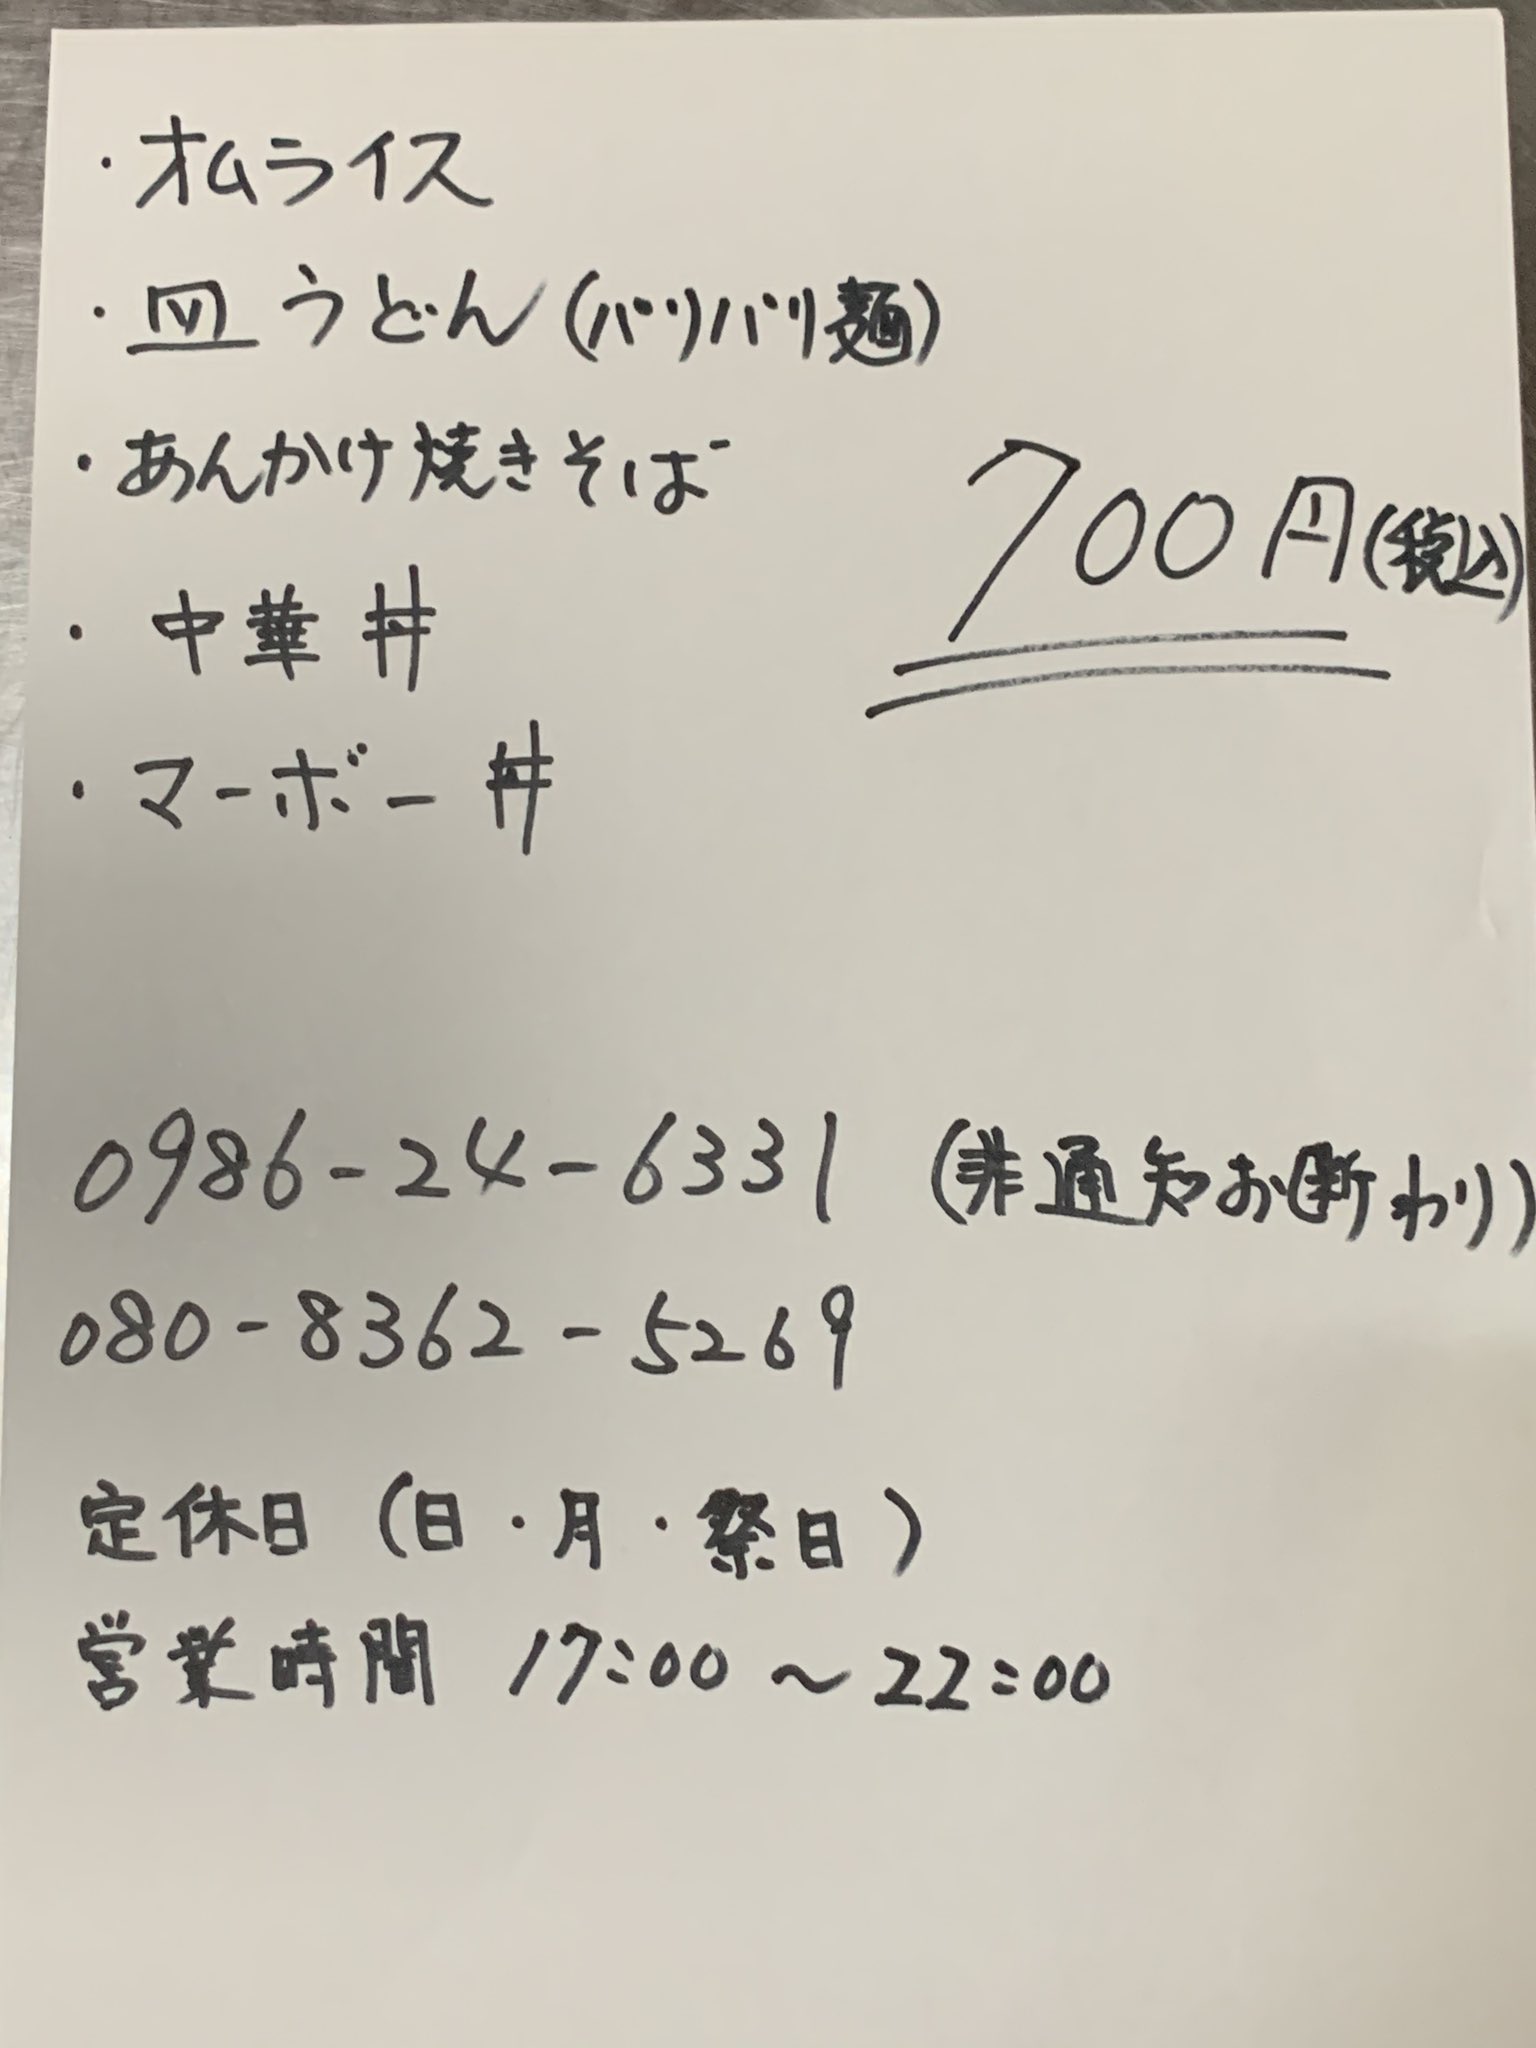 ・オムライス
・皿うどん(パリパリ麺)
・あんかけ焼きそば
700円(税込)
・中華丼
・マーボー丼
0986-24-6331 (非通知お断わり)
080-8362-5269
定休日(日・月・祭日)
営業時間 17:00～22:00